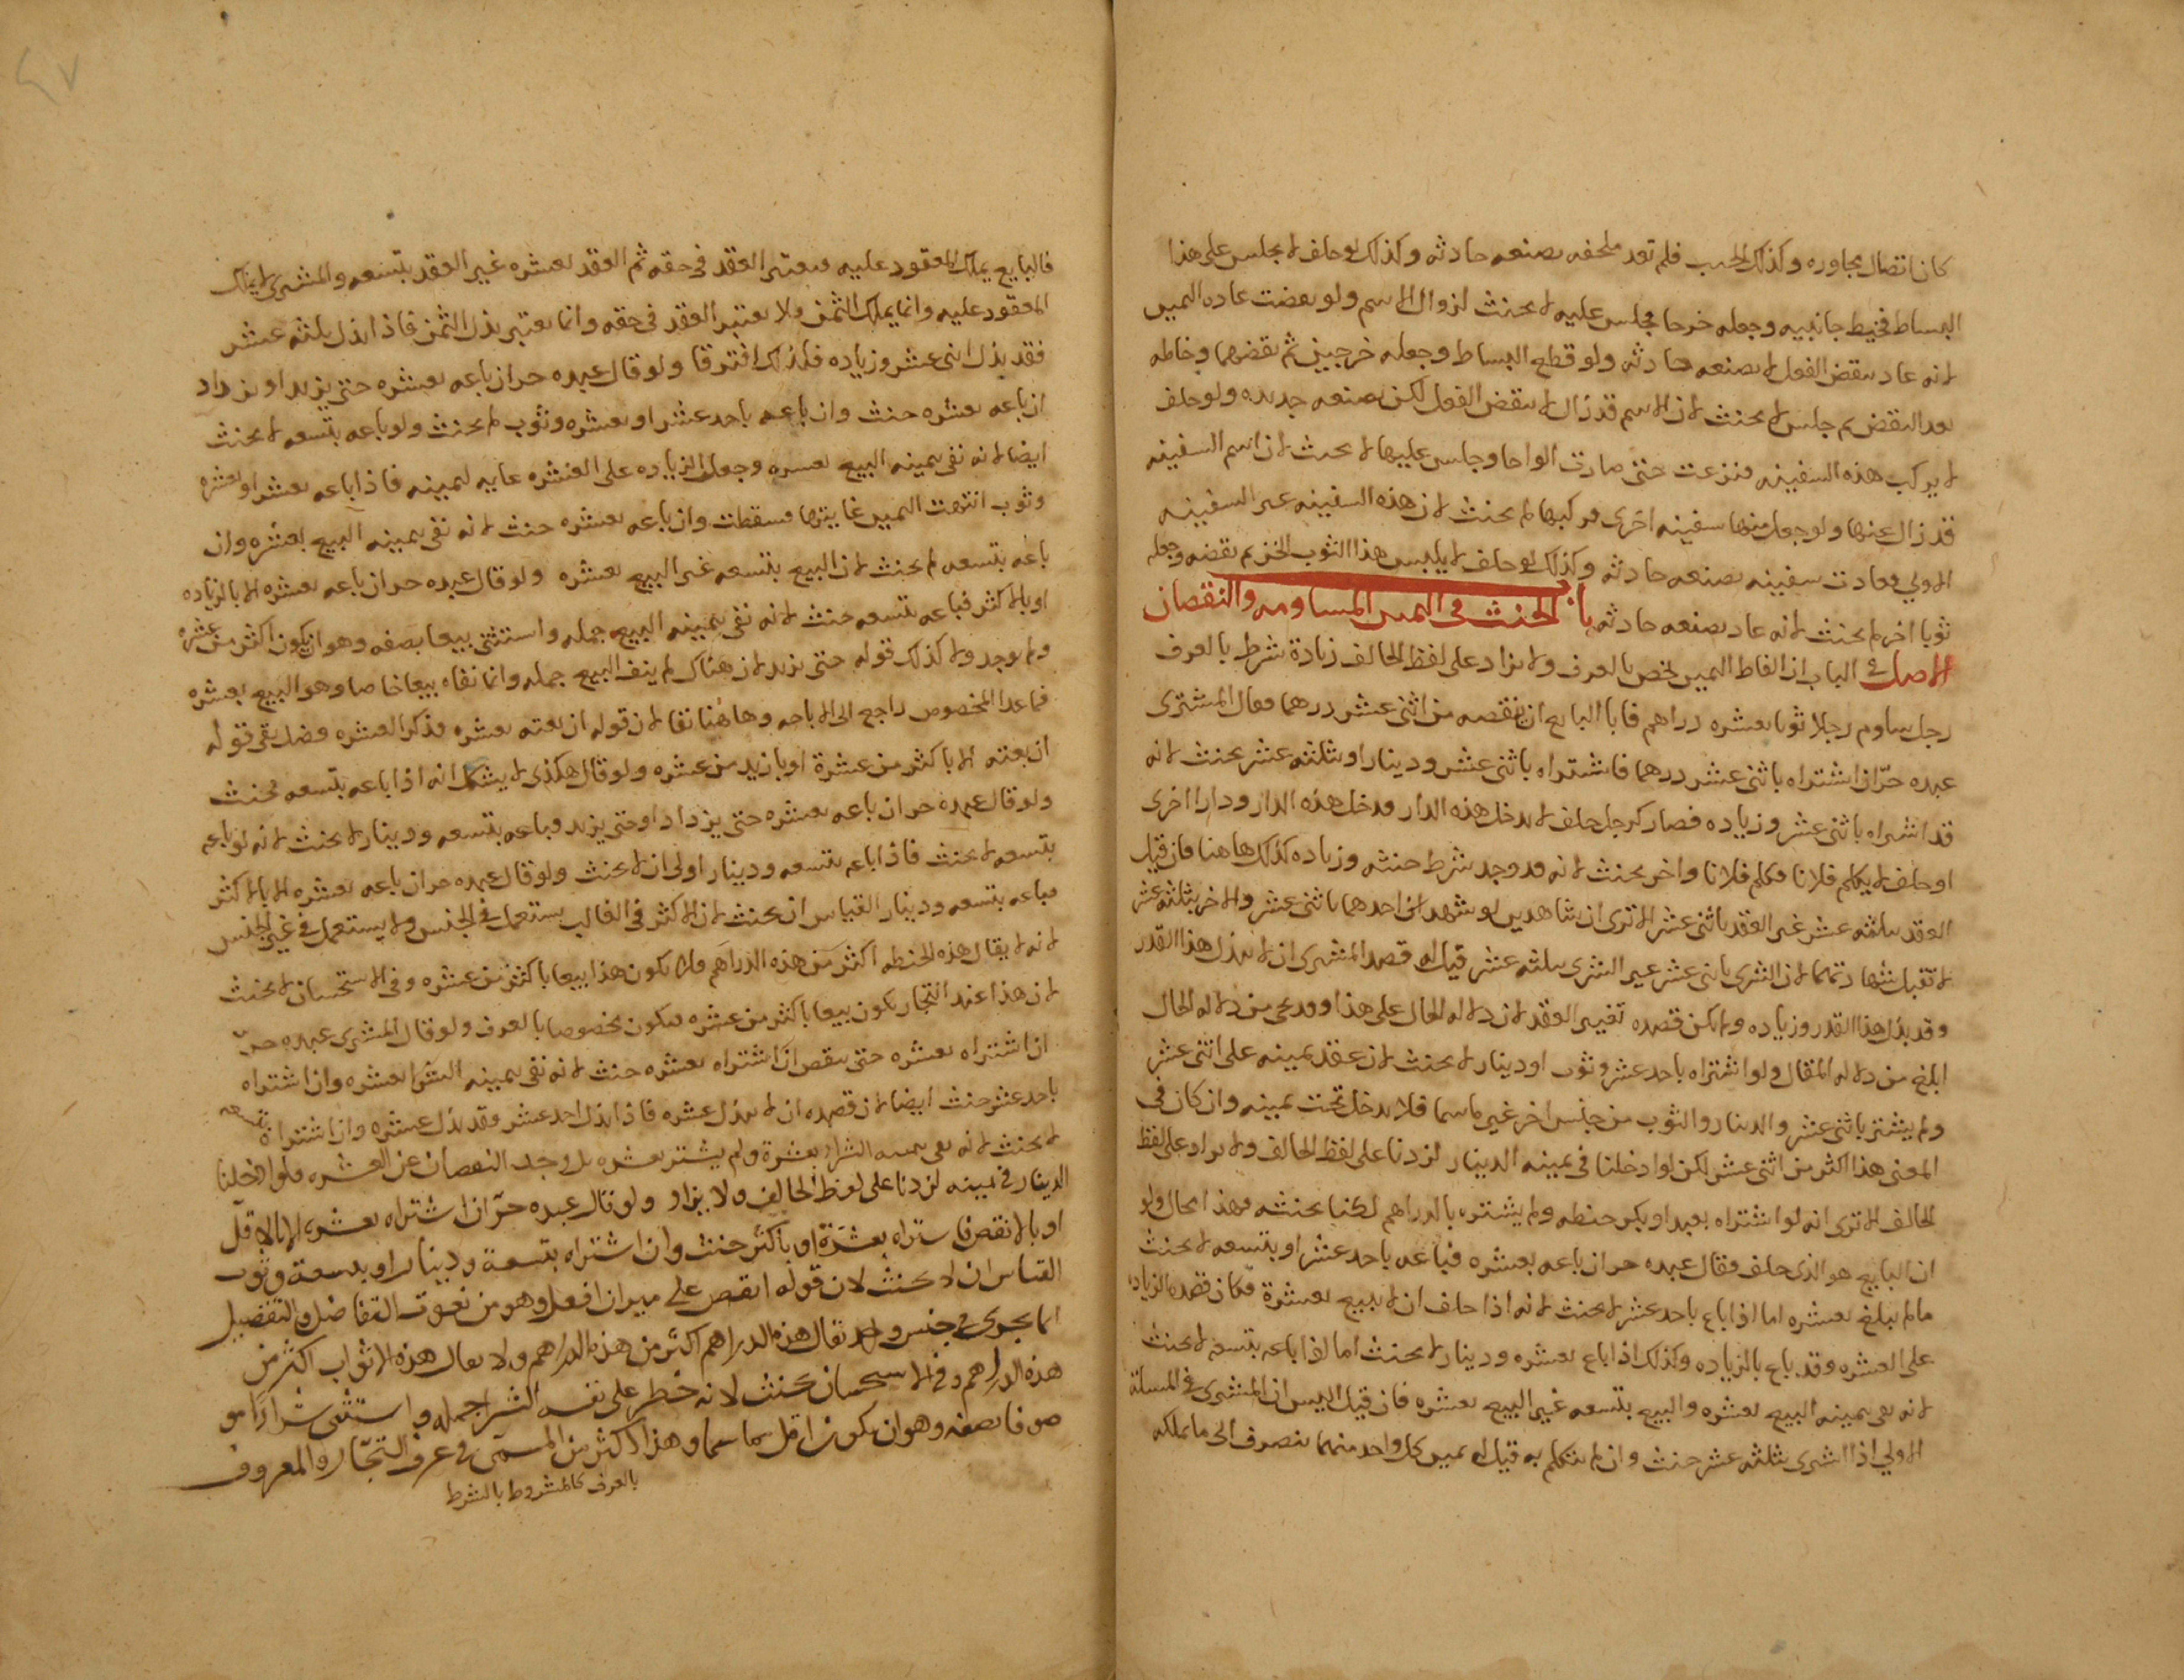 كان اتصال مجاوره وكذلك الجيب فلم تعد ملحفه بصنعه حادثه وكذلك لو حلف لا يجلس على هذا
البساط فخيط جانبيه وجعله خرجا فجلس عليه لا يحنث لزوال الاسم ولو نقضت عاده اليمين
لانه عاد بنقض الفعل لا بصنعه حادثه ولو قطع البساط وجعله خرجين ثم نقضهما وخاطه
بعد النقض ثم جلس لا يحنث لان الاسم قد زال لا بنقض الفعل لكن بصنعه جديده ولو حلف
لا يركب هذه السفينه فنزعت حتى صارت الواحا وجلس عليها لا يحنث لان اسم السفينه
قد زال عنها ولو جعل منها سفينه اخرى فركبها لم يحنث لان هذه السفينه غير السفينه
الاولى وعادت سفينه بصنعه حادثه وكذلك لو حلف لا يلبس هذا الثوب الخز ثم نقضه وجعله
ثوبا اخر لم يحنث لانه عاد بصنعه حادثه باب الحنث في اليمين المساومه والنقصان
الاصل في الباب ان الفاظ اليمين تخص بالعرف ولا يزاد على لفظ الحالف زيادة شرط بالعرف
رجل ساوم رجلا ثوبا بعشره دراهم فابا البايع ان ينقصه من اثنى عشر درهما فقال المشترى
عبده حرّ ان اشتراه باثنى عشر درهما فاشتراه باثنى عشر ودينار او بثلثه عشر يحنث لانه
قد اشتراه باثنى عشر وزياده فصار كرجل حلف لا يدخل هذه الدار فدخل هذه الدار ودارا اخرى
او حلف لا يكلم فلانا فكلم فلانا واخر يحنث لانه قد وجد شرط حنثه وزياده كذلك هاهنا فان قيل
العقد بثلثه عشر غير العقد باثنى عشر الا ترى ان شاهدين لو شهد احدهما باثنى عشر والاخر بثلثه عشر
لا تقبل شهادتهما لان الشرى باثنى عشر غير الشرى بثلثه عشر قيل له قصد المشترى ان لا يبذل هذا القدر
وقد بذل هذا القدر وزياده ولم يكن قصده تغيير العقد لان دلاله الحال على هذا من دلاله الحال
ابلغ من دلاله المقال ولو اشتراه باحد عشر وثوب او دينار لا يحنث لان عقد يمينه على اثنى عشر
ولم يشتر باثنى عشر والدينار والثوب من جنس اخر غير ما سما فلا يدخل تحت يمينه وان كان في
المعنى هذا اكثر من اثنى عشر لكن لو ادخلنا في يمينه الدينار لزدنا على لفظ الحالف ولا يزاد على لفظ
الحالف الا ترى انه لو اشتراه بعبد او بكر حنطه ولم يشتره بالدراهم لكنا نحنثه وهذا محال ولو
ان البايع هو الذى حلف فقال عبده حر ان باعه بعشره فباعه باحد عشر او بتسعه لا يحنث
ما لم يبلغ بعشره اما اذا باع باحد عشر لا يحنث لانه اذا حلف ان لا يبيع بعشرة فكان قصده الزياده
على العشره وقد باع بالزياده وكذلك اذا باع بعشره ودينار لا يحنث اما اذا باعه بتسعه لا يحنث
لانه نفى بيمينه البيع بعشره والبيع بتسعه غير البيع بعشره فان قيل اليس ان المشترى في المسالة
الاولى اذا اشترى بثلثه عشر حنث وان لم يتكلم به قيل له يمين كل واحد منهما تنصرف الى ما يملكه
فالبايع يملك المعقود عليه فيعتبر العقد في حقه ثم العقد بعشره غير العقد بتسعه والمشترى لا يملك
المعقود عليه وانما يملك الثمن ولا يعتبر العقد في حقه وانما يعتبر بذل الثمن فاذا بذل بثلثه عشر
فقد بذل اثنى عشر وزياده فلذلك افترقا ولو قال عبده حر ان باعه بعشره حتى يزيد او يزداد
ان باعه بعشره حنث وان باعه باحد عشر او بعشره وثوب لم يحنث ولو باعه بتسعه لا يحنث
ايضا لانه نفى بيمينه البيع بعشره وجعل الزياده على العشره غايه ليمينه فاذا باعه بعشر او بعشره
وثوب انتهت اليمين غايتها فسقطت وان باعه بعشره حنث لانه نفى بيمينه البيع بعشره وان
باعه بتسعه لم يحنث لان البيع بتسعه غير البيع بعشره ولو قال عبده حر ان باعه بعشره الا بالزياده
او بالاكثر فباعه بتسعه حنث لانه نفى بيمينه البيع جمله واستثنى بيعا بصفه وهو ان يكون اكثر من عشره
ولم يوجد ولا كذلك قوله حتى يزيد لان هناك لم ينف البيع جمله وانما نفاه بيعا خاصا وهو البيع بعشره
فما عدا المخصوص راجع الى الاباحه وهاهنا نفا لان قوله ان بعته بعشره فذكر العشره فضل بقى قوله
ان بعته الا باكثر من عشرة او بازيد من عشره ولو قال هكذى لا يشكل انه اذا باعه بتسعه يحنث
ولو قال عبده حر ان باعه بعشره حتى يزداد او حتى يزيد فباعه بتسعه ودينار لا يحنث لانه لو باعه
بتسعه لا يحنث فاذا باعه بتسعه ودينار اولى ان لا يحنث ولو قال عبده حر ان باعه بعشره الا بالاكثر
فباعه بتسعه ودينار القياس ان يحنث لان الاكثر في الغالب يستعمل في الجنس ولا يستعمل في غير الجنس
لانه لا يقال هذه الحنطه اكثر من هذه الدراهم فلا يكون هذا بيعا باكثر من عشره وفي الاستحسان لا يحنث
لان هذا عند التجار يكون بيعا باكثر من عشره فيكون مخصوصا بالعرف ولو قال المشترى عبده حرّ
ان اشتراه بعشره حتى ينقص ان اشتراه بعشره حنث لانه نفى بيمينه الشرا بعشره وان اشتراه
باحد عشر حنث ايضا لان قصده ان لا يبذل عشره فاذا بذل احد عشر فقد بذل عشره وان اشتراه بتسعه
لا يحنث لانه نفى بيمينه الشراء بعشرة ولم يشتر بعشره بل وجد النقصان عن العشره فلو ادخلنا
الدينار في يمينه لزدنا على لفظ الحالف ولا يزاد ولو قال عبده حرّ ان اشتراه بعشره الا بالاقل
او بالانقص فاشتراه بعشرة او باكثر حنث وان اشتراه بتسعة ودينار او بتسعة وثوب
القياس ان لا يحنث لان قوله انقص على ميزان افعل وهو من نعوت التفاضل والتفضيل
انما يجرى في جنس واحد يقال هذه الدراهم اكثر من هذه الدراهم ولا يقال هذه الاثواب اكثر من
هذه الدراهم وفي الاستحسان يحنث لانه حظر على نفسه الشرا جمله واستثنى شراء مو
صوفا بصفه وهو ان يكون اقل مما سما وهذا اكثر من المسمى في عرف التجّار والمعروف
بالعرف كالمشروط بالشرط